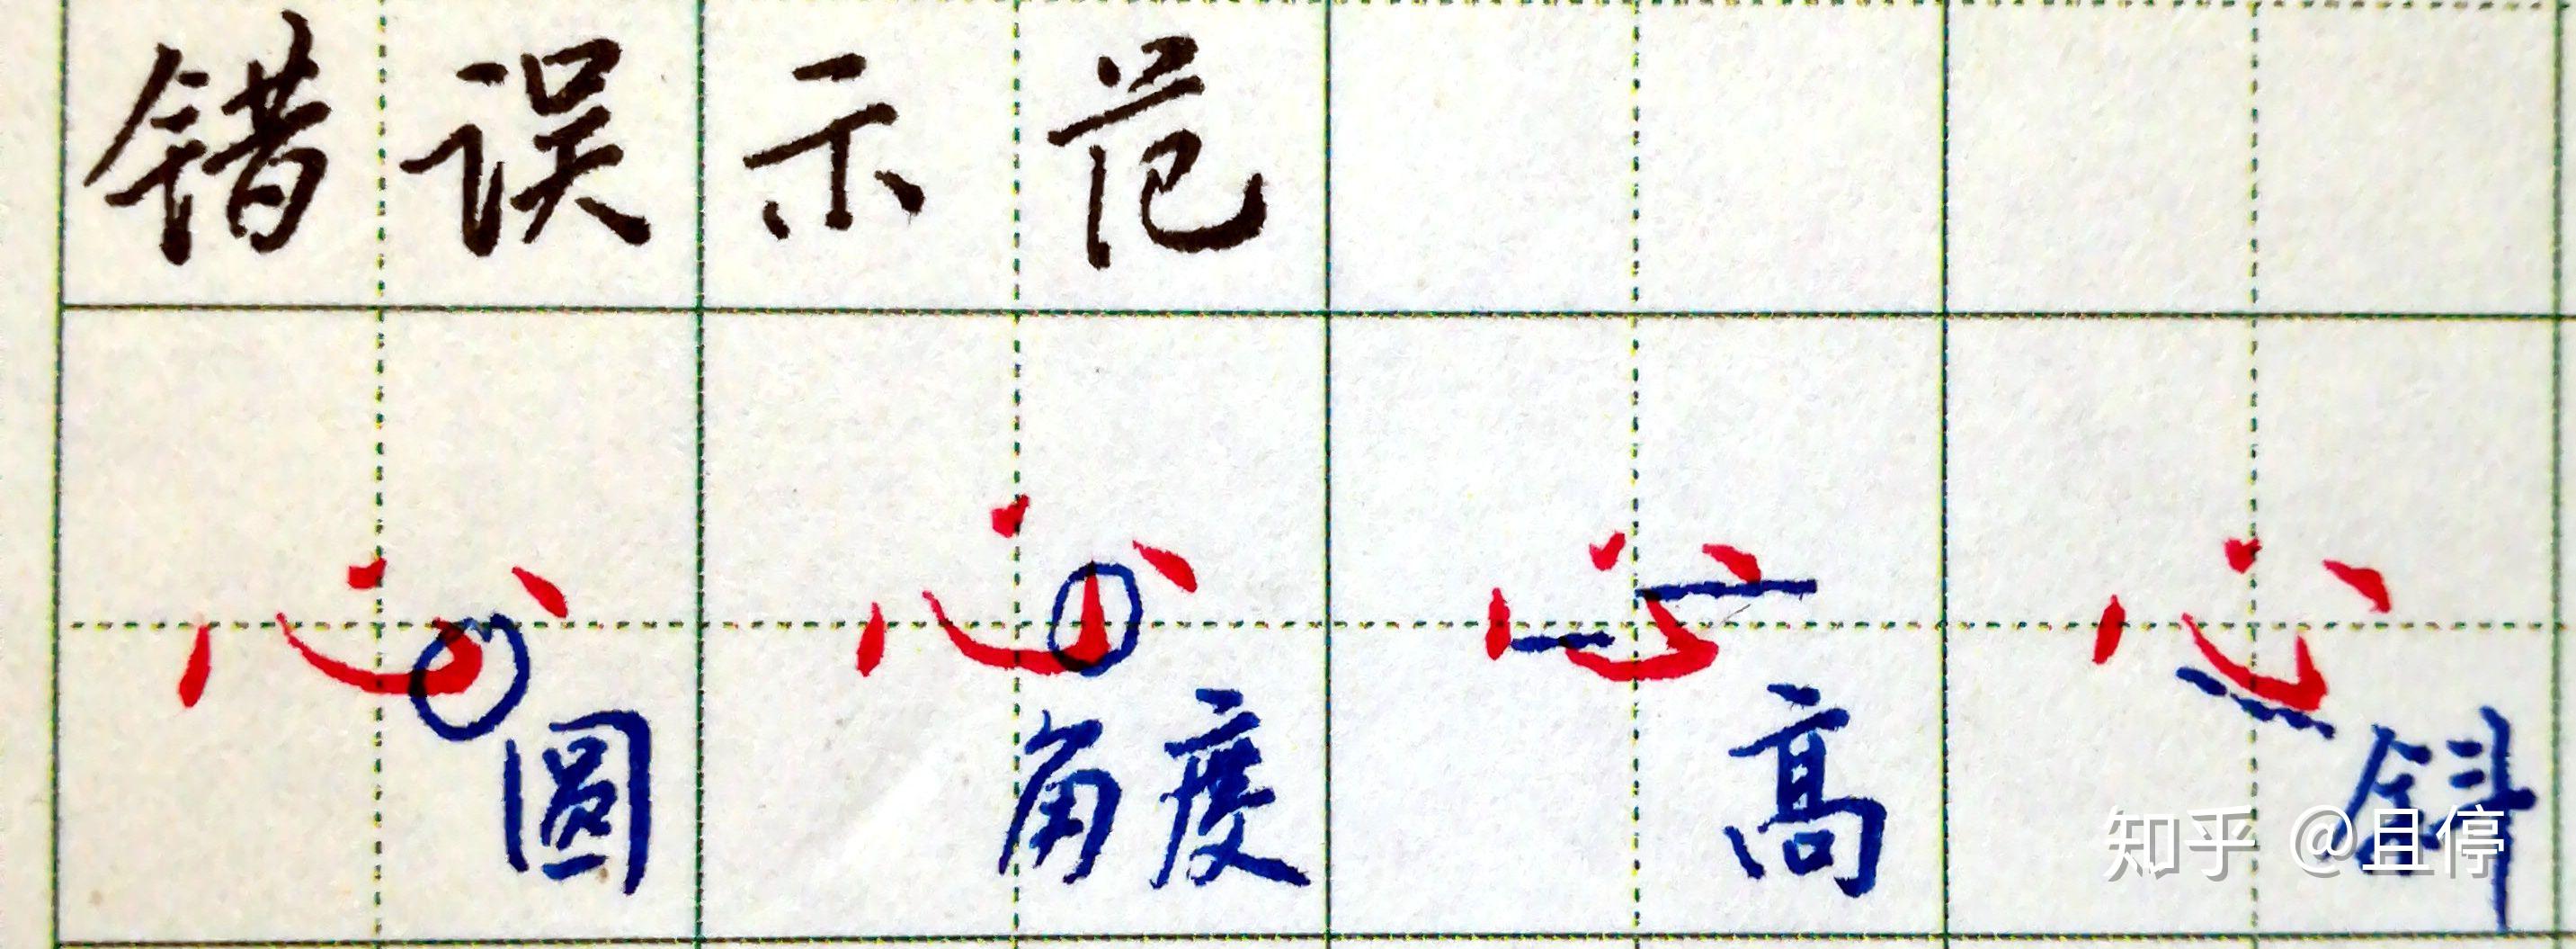 错误示范
心 心 心 心
圆 角度 高 斜
知乎 @且停